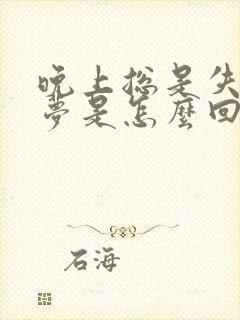 晚上總是失
夢是怎麼回
石海